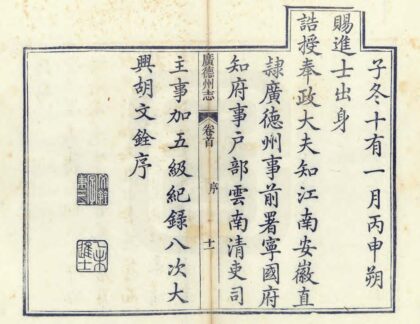 子冬十有一月丙申朔
賜進士出身
誥授奉政大夫知江南安徽直
隸廣德州事前署寧國府
知府事戶部雲南清吏司
廣德州志 卷首 序 十一
主事加五級紀錄八次大
興胡文銓序